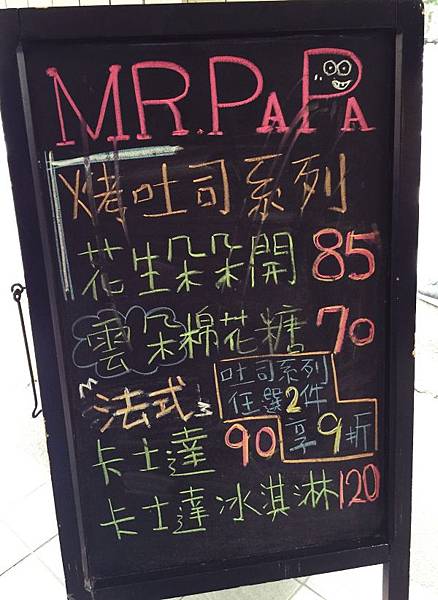 MR.PAPA
烤吐司系列
花生朵朵開 85
雲朵棉花糖 70
法式
吐司系列
任選2件
享9折
卡士達 90
卡士達冰淇淋 120